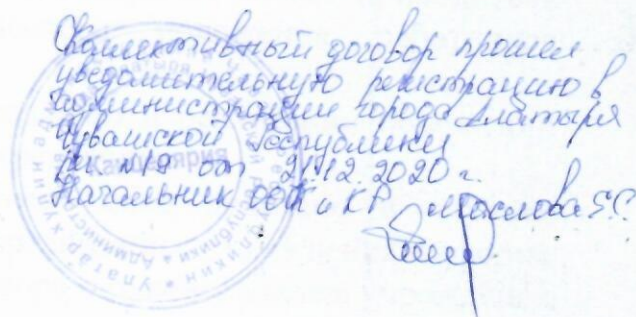 Коллективный договор прошел
уведомительную регистрацию в
администрации города Алатыря
Чувашской Республики
рег. №19 от 21.12.2020 г.
Начальник ООК и КР Маслова Е.Г.
Канцелярия